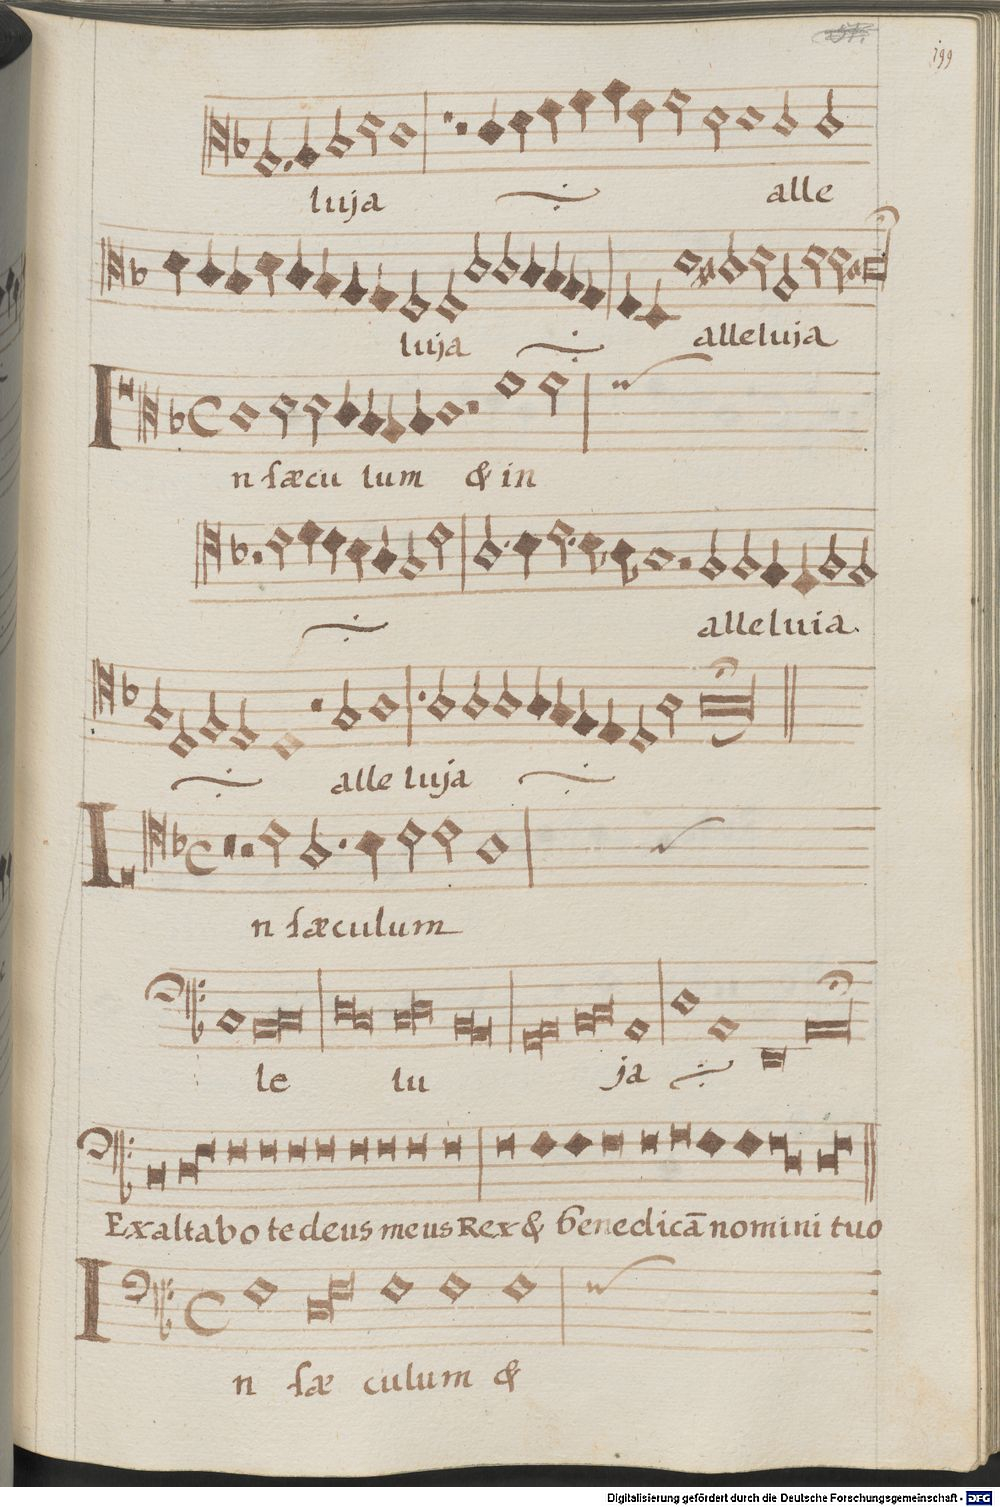 199
luja alle
luja alleluja
In sæculum & in
alleluia.
alle luja
In sæculum
le lu ja
Exaltabo te deus meus Rex & benedicā nomini tuo
In sæ culum &
Digitalisierung gefördert durch die Deutsche Forschungsgemeinschaft - DFG